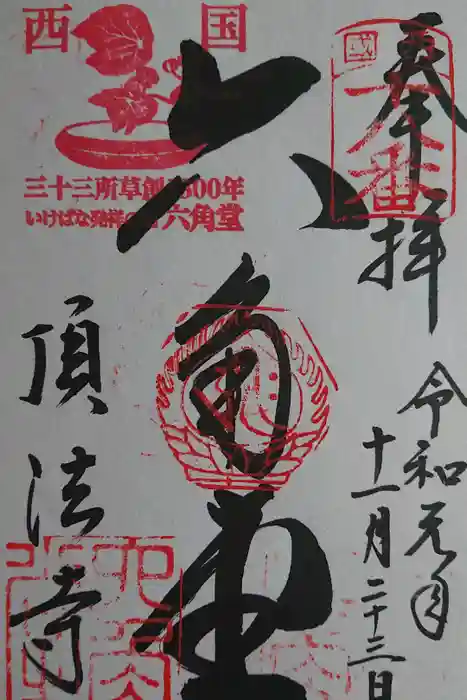 奉拝
十八番
令和元年
十一月二十三日
六角堂
西国
三十三所草創1300年
いけばな発祥の地 六角堂
頂法寺